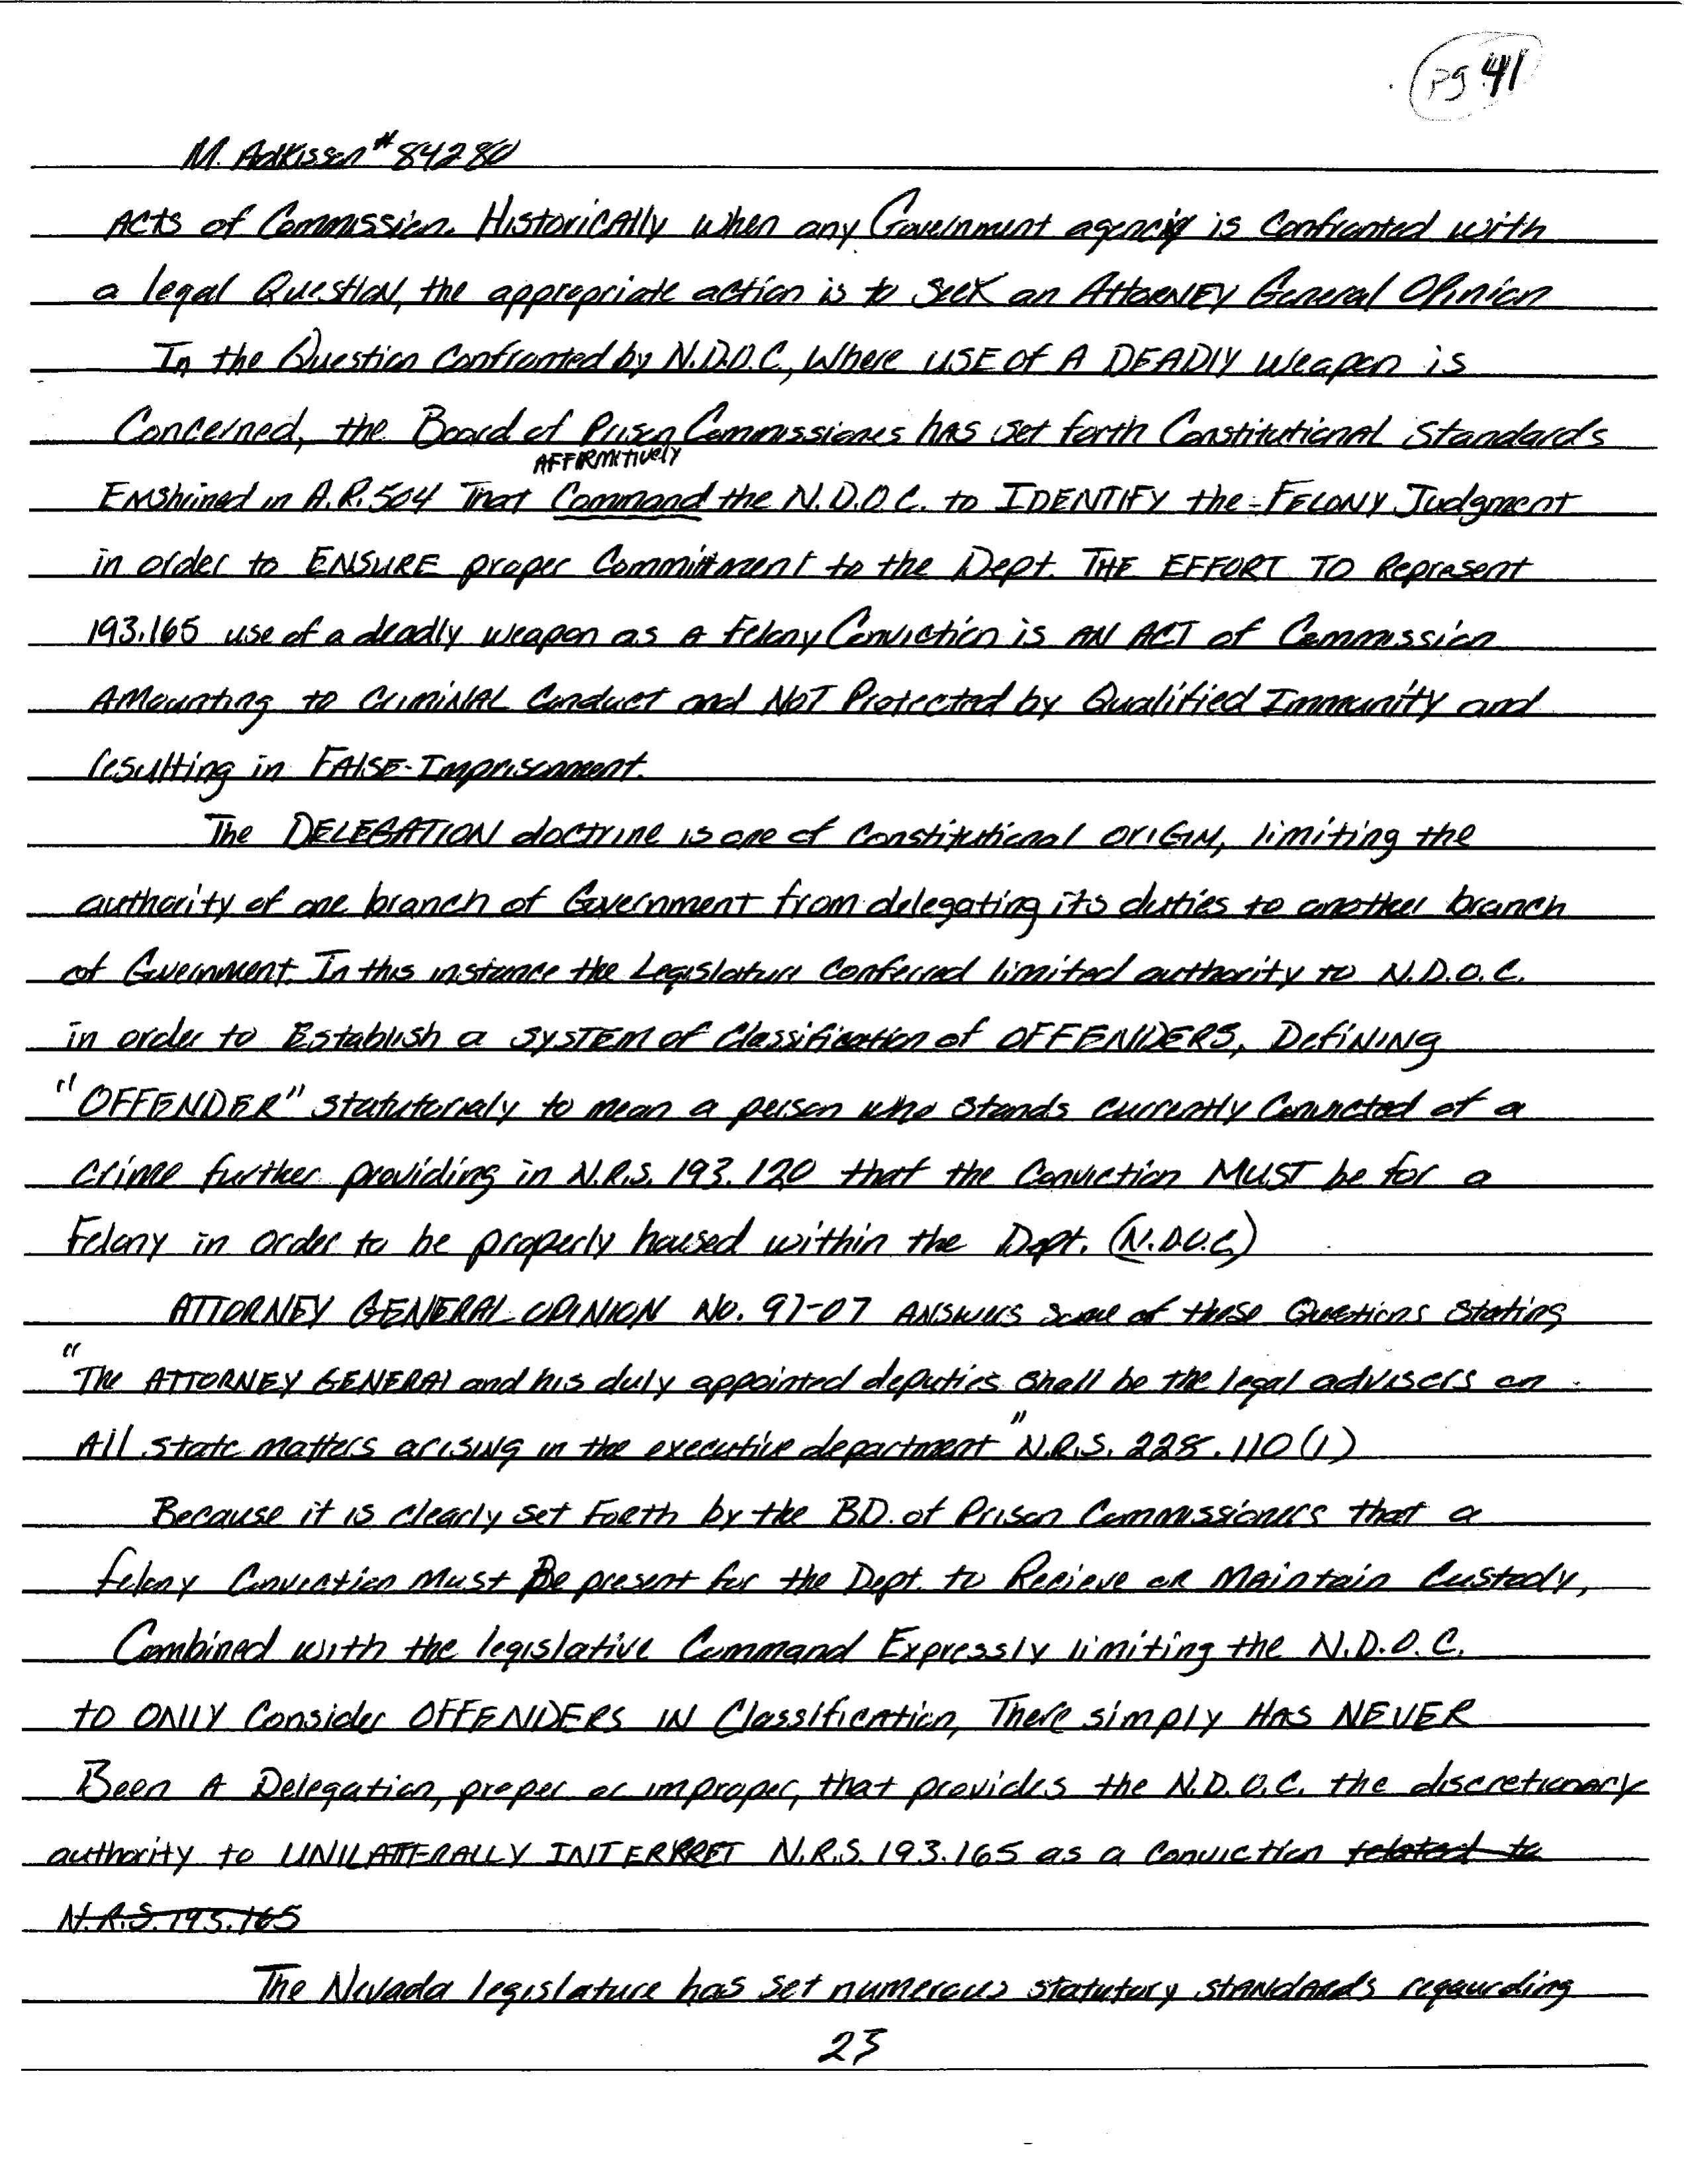 pg 41
M. Adkisson #84280
Acts of Commission. Historically when any Government agency is confronted with
a legal Question, the appropriate action is to seek an Attorney General Opinion
In the Question Confronted by N.D.O.C., Where USE of A DEADLY Weapon is
Concerned, the Board of Prison Commissiones has set forth Constitutional Standards
AFFIRMITIVELY
Enshrined in A.R. 504 That Command the N.D.O.C. to IDENTIFY the FELONY Judgment
in order to ENSURE proper Committment to the Dept. THE EFFORT TO Represent
193.165 use of a deadly weapon as A Felony Conviction is AN ACT of Commission
Amounting to CriMiNAL Conduct and NOT Protected by Qualified Immunity and
resulting in FALSE-Imprisonment.
The DELEGATION doctrine is one of Constitutional ORIGIN, limiting the
authority of one branch of Government from delegating its duties to another branch
of Government. In this instance the Legislature Conferred limited authority to N.D.O.C.
in order to Establish a SYSTEM of Classification of OFFENDERS, DefiNING
"OFFENDER" statutorialy to mean a person who stands currently Convicted of a
crime further providing in N.R.S. 193.120 that the Conviction MUST be for a
Felony in order to be properly housed within the Dept. (N.D.O.C.)
ATTORNEY GENERAL OPINION No. 97-07 ANSWERS some of these Questions Stating
"The ATTORNEY GENERAL and his duly appointed deputies shall be the legal advisers on
All state matters arising in the executive department" N.R.S. 228.110(1)
Because it is clearly set Forth by the BD. of Prison Commissioners that a
felony Convection Must Be present for the Dept. to Recieve OR MAintain Custody,
Combined with the legislative Command Expressly limiting the N.D.O.C.
to ONLY Consider OFFENDERS IN Classification, There simply HAS NEVER
Been A Delegation, proper or improper, that provides the N.D.O.C. the discretionary
authority to UNILATTERALLY INTERPRET N.R.S. 193.165 as a Conviction related to
N.R.S. 193.165
The Nevada legislature has set numerous statutory STANdArds regaurding
23